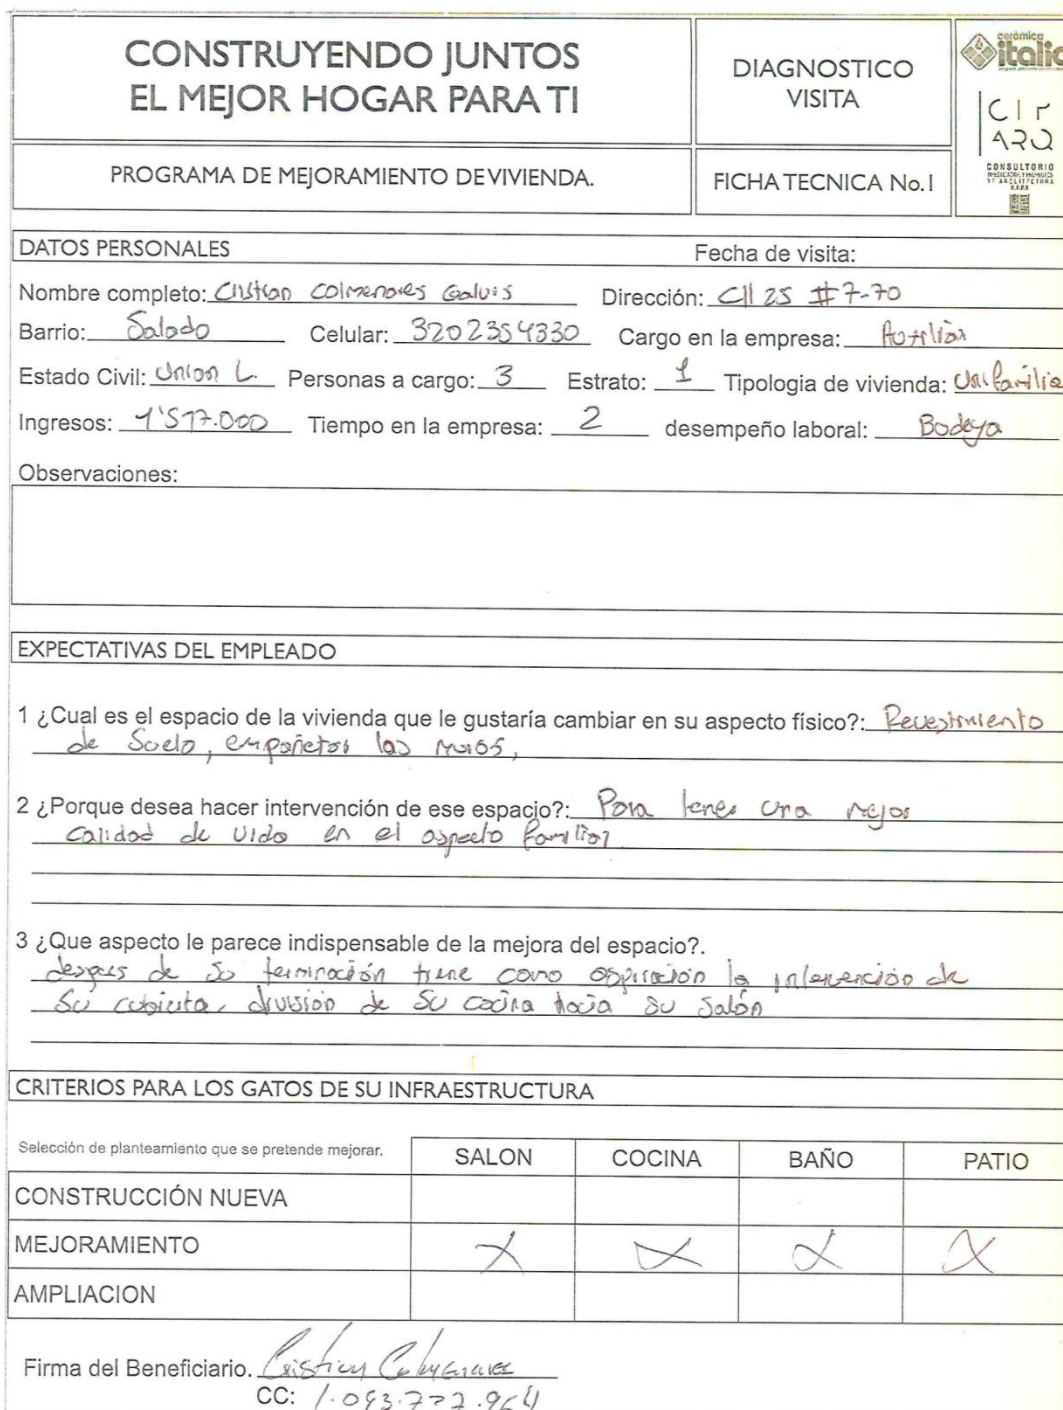 CONSTRUYENDO JUNTOS
EL MEJOR HOGAR PARA TI
DIAGNOSTICO
VISITA
cerámica
italia
CIr
ARQ
CONSULTORIO
PROGRAMA DE MEJORAMIENTO DE VIVIENDA.
FICHA TECNICA No. I
DATOS PERSONALES Fecha de visita:
Nombre completo: Cristian Colmenares Galvis Dirección: Cll 25 #7-70
Barrio: Salado Celular: 3202354330 Cargo en la empresa: Auxiliar
Estado Civil: Union L. Personas a cargo: 3 Estrato: 1 Tipologia de vivienda: Unifamilia
Ingresos: 1'517.000 Tiempo en la empresa: 2 desempeño laboral: Bodega
Observaciones:
EXPECTATIVAS DEL EMPLEADO
1 ¿Cual es el espacio de la vivienda que le gustaría cambiar en su aspecto físico?: Revestimiento
de Suelo, empañetar las muros,
2 ¿Porque desea hacer intervención de ese espacio?: Para tener una mejor
calidad de vida en el aspecto familiar
3 ¿Que aspecto le parece indispensable de la mejora del espacio?.
despues de su terminación tiene como aspiración la intervención de
su cubierta, división de su cocina hacia su salón
CRITERIOS PARA LOS GATOS DE SU INFRAESTRUCTURA
Selección de planteamiento que se pretende mejorar. SALON COCINA BAÑO PATIO
CONSTRUCCIÓN NUEVA
MEJORAMIENTO X X X X
AMPLIACION
Firma del Beneficiario. Cristian Colmenares
CC: 1.093.777.964